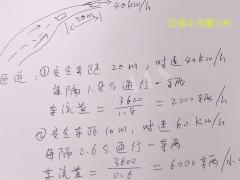 40km/h
回看车流量分析
<20m>
① 安全车距 20m, 时速 40km/h
每隔 1.8 s 通行一车辆
车流量 = 3600/1.8 = 2000 车辆/
② 安全车距 10m, 时速 60 km/h
每隔 0.6 s 通行一车辆
车流量 = 3600/0.6 = 6000 车辆/小